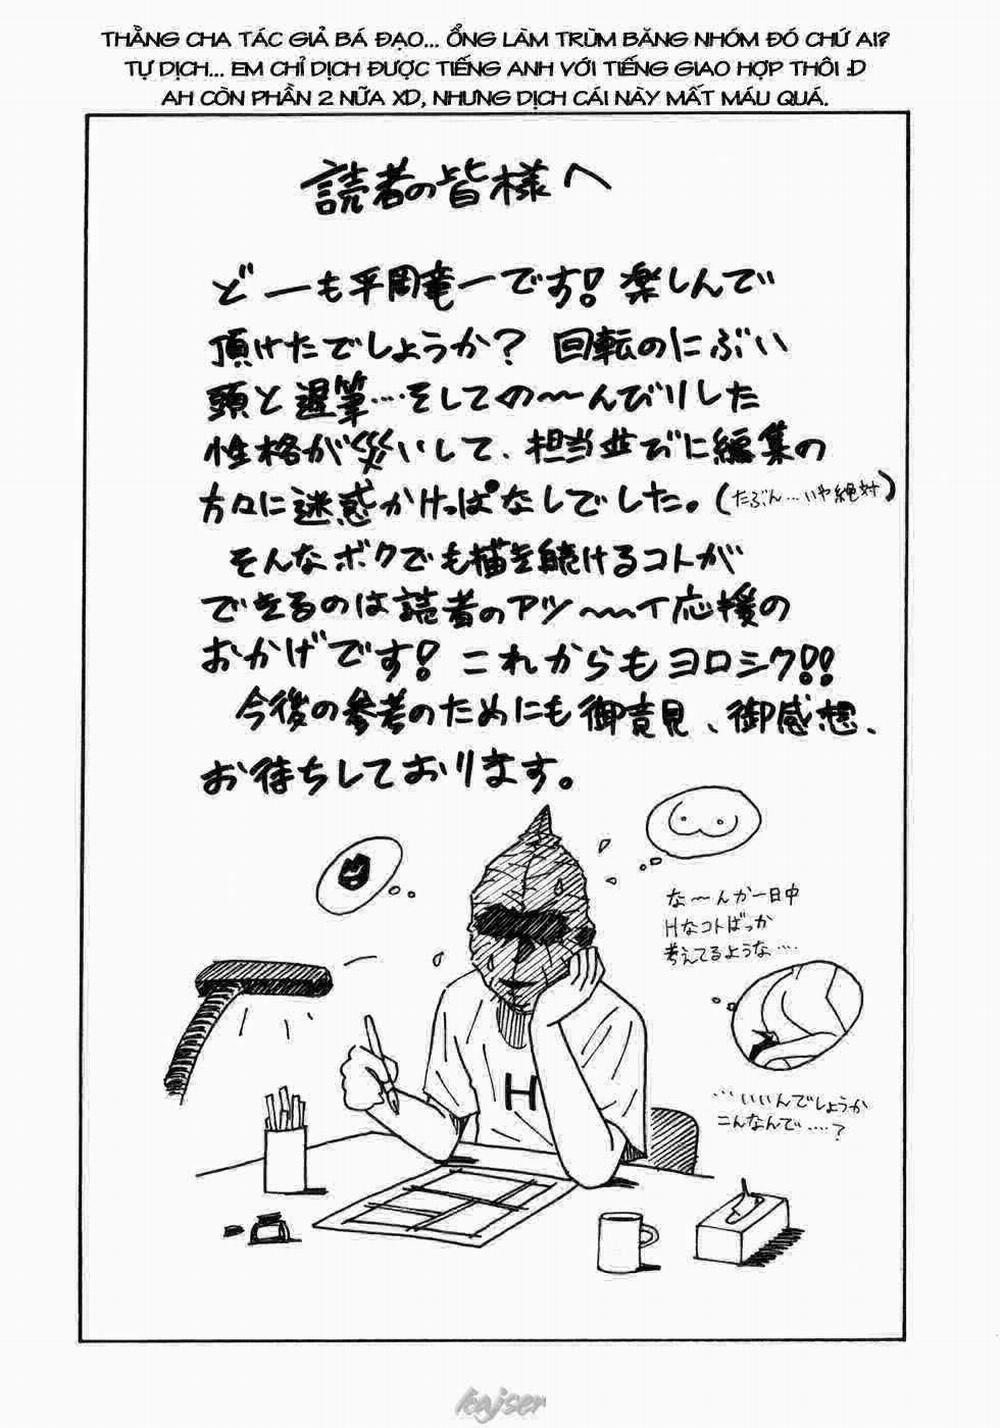 THẰNG CHA TÁC GIẢ BÁ ĐẠO... ỔNG LÀM TRÙM BĂNG NHÓM ĐÓ CHỨ AI?
TỰ DỊCH... EM CHỈ DỊCH ĐƯỢC TIẾNG ANH VỚI TIẾNG GIAO HỢP THÔI :D
AH CÒN PHẦN 2 NỮA XD, NHƯNG DỊCH CÁI NÀY MẤT MÁU QUÁ.
読者の皆様へ
どーも平岡竜一です! 楽しんで
頂けたでしょうか? 回転のにぶい
頭と遅筆…そしての〜〜んびりした
性格が災いして、担当並びに編集の
方々に迷惑かけっぱなしでした。(たぶん…いや絶対)
そんなボクでも描き続けるコトが
できるのは読者のアツ〜〜イ応援の
おかげです! これからもヨロシク!!
今後の参考のためにも御意見、御感想、
お待ちしております。
な〜んか一日中
Hなコトばっか
考えてるような…
H
…いいんでしょうか
こんなんで…?
kajser